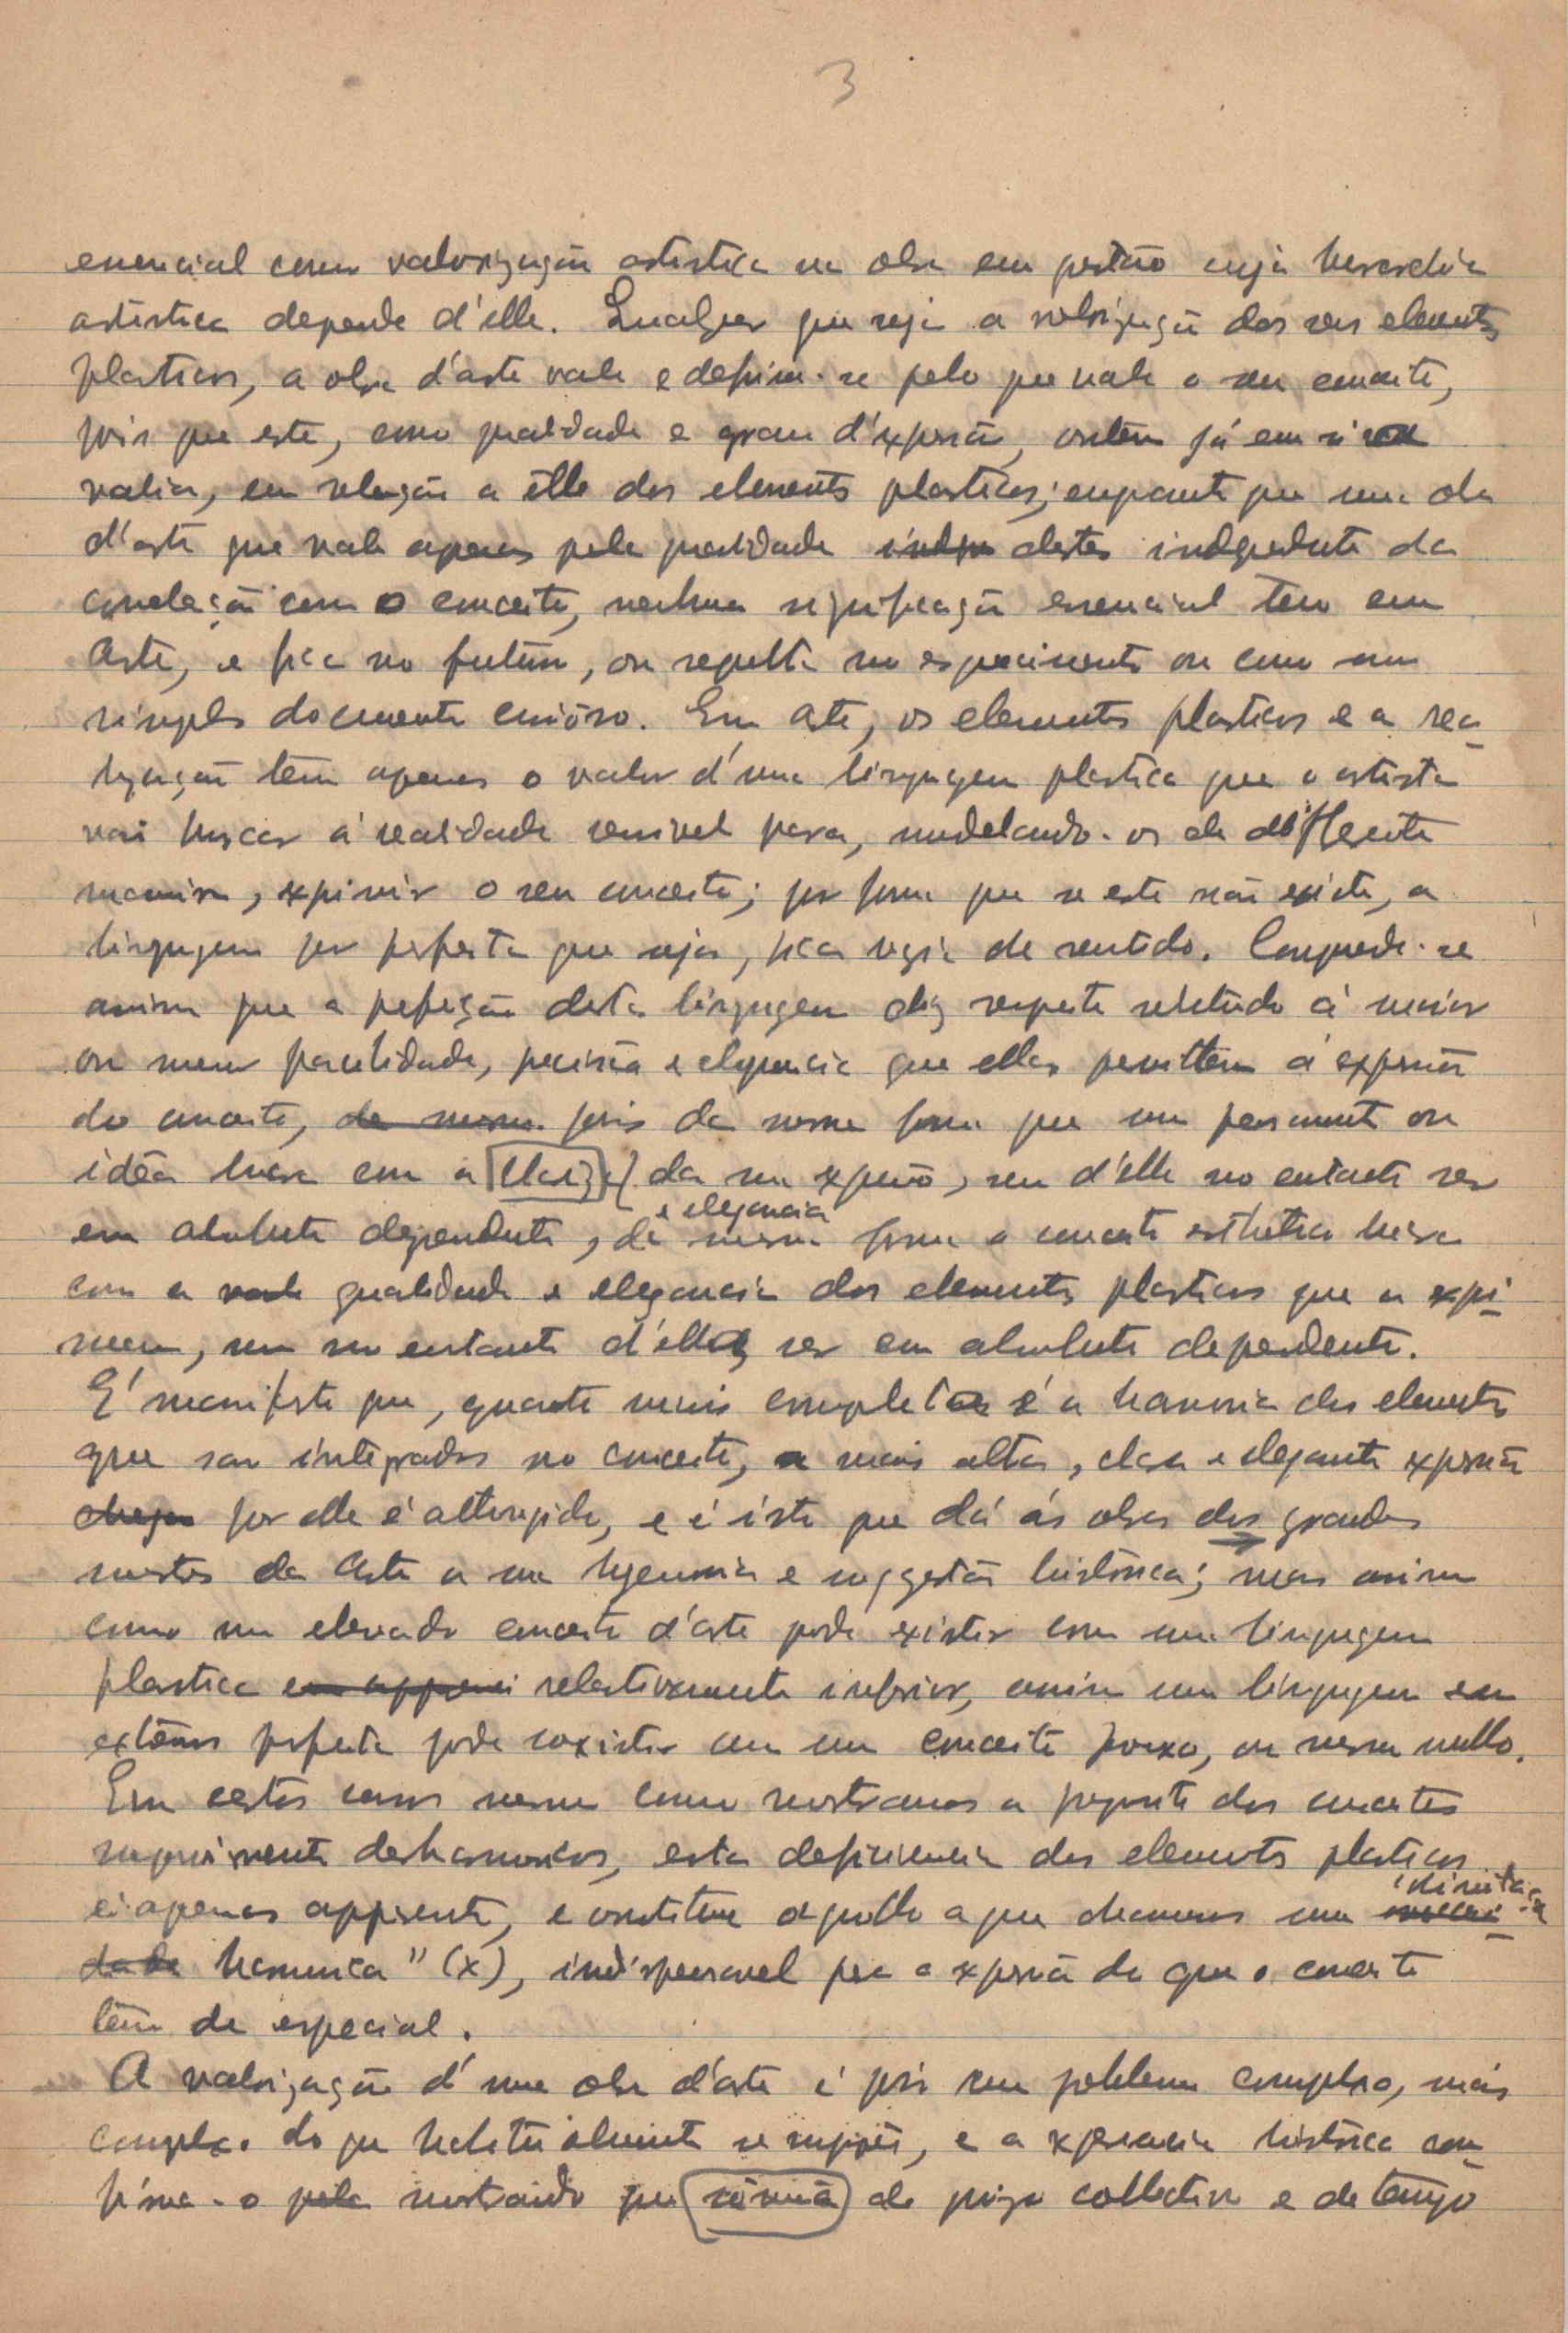 3
essencial como valorização artistica na obra em questão cuja hierarchia
artistica depende d'elle. Qualquer que seja a valorização dos seus elementos
plasticos, a obra d'arte vale e define-se pelo que vale o seu conceito,
pois que este, como qualidade e grau d'expressão, contém já em si
valia, em relação a elle dos elementos plasticos; emquanto que uma obra
d'arte que vale apenas pela qualidade destes independente da
correlação com o conceito, nenhuma significação essencial tem em
Arte, e fica no futuro, ou sepulta no esquecimento ou como um
simples documento curiôso. Em Arte, os elementos plasticos e a rea-
lização têm apenas o valor d'uma linguagem plastica que o artista
vai buscar á realidade sensivel para, modelando-os de differente
maneira, exprimir o seu conceito; por forma que se este não existe, a
linguagem por perfeita que seja, fica vazia de sentido. Comprende-se
assim que a perfeição desta linguagem diz respeito sobretudo á maior
ou menor facilidade, precisão e eloquencia que ellas permittem á expressão
do conceito, de mesma pois da mesma forma que um pensamento ou
idéa lucra com a clareza da sua expressão, sem d'elle no entanto ser
e elegancia
em absoluto dependente, da mesma forma o conceito esthetico lucra
com a qualidade e elegancia dos elementos plasticos que o expri-
mem, sem no entanto d'elles ser em absoluto dependente.
E' manifesto que, quanto mais completa é a harmonia dos elementos
que são integrados no conceito, a mais alta, clara e elegante expressão
por elle é attingida, e é isto que dá ás obras dos grandes
mestres da Arte a sua hegemonia e suggestão historica; mas assim
como um elevado conceito d'arte pode existir com uma linguagem
plastica relativamente inferior, assim uma linguagem em
extremo perfeita pode coexistir com um conceito frouxo, ou mesmo nullo.
Em certos casos mesmo como mostramos a proposito dos conceitos
superiormente desharmonicos, esta deficiencia dos elementos plasticos
é apenas apparente, e constitue aquillo a que chamamos uma
harmonica" (x), indispensavel para a expressão do que o conceito
têm de especial.
A valorização d'uma obra d'arte é pois um problema complexo, mais
complexo do que habitualmente se suppõe, e a experiencia historica con-
firma-o mostrando que do juizo collectivo e de tempo